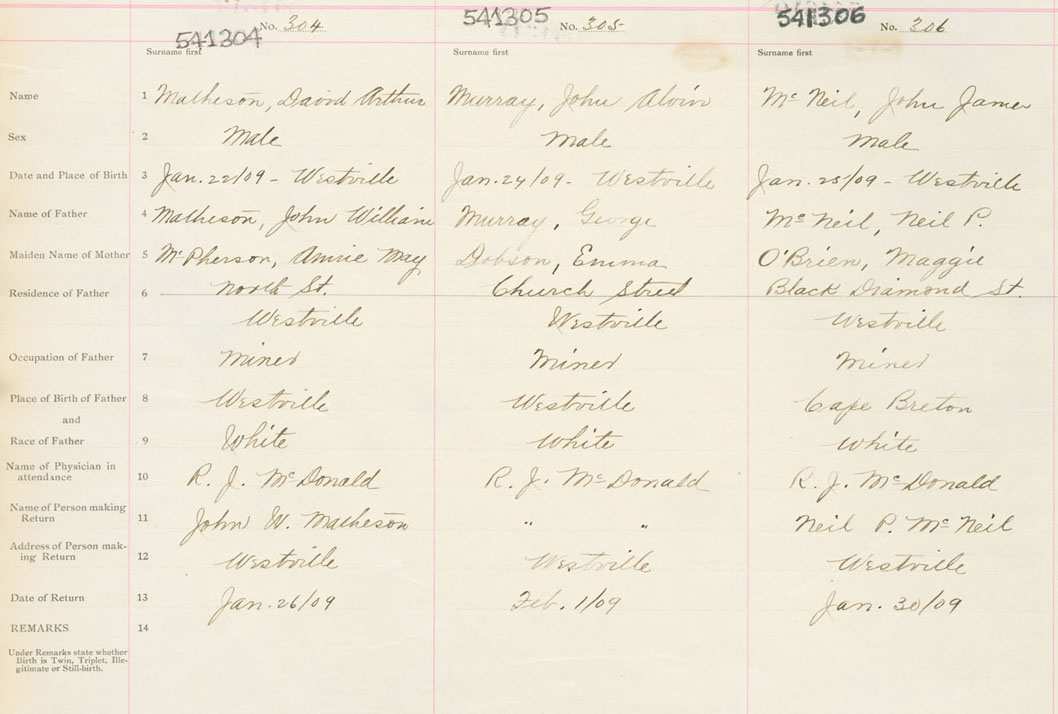 541304 No. 304 541305 No. 305 541306 No. 306
Surname first Surname first Surname first
Name 1 Matheson, David Arthur Murray, John Alvin Mc Neil, John James
Sex 2 Male Male Male
Date and Place of Birth 3 Jan. 22/09 - Westville Jan. 24/09 - Westville Jan. 25/09 - Westville
Name of Father 4 Matheson, John William Murray, George Mc Neil, Neil P.
Maiden Name of Mother 5 McPherson, Annie May Dobson, Emma O'Brien, Maggie
Residence of Father 6 North St. Church Street Black Diamond St.
Westville Westville Westville
Occupation of Father 7 Miner Miner Miner
Place of Birth of Father 8 Westville Westville Cape Breton
and
Race of Father 9 White White White
Name of Physician in
attendance 10 R. J. McDonald R. J. McDonald R. J. McDonald
Name of Person making
Return 11 John W. Matheson " " Neil P. McNeil
Address of Person mak-
ing Return 12 Westville Westville Westville
Date of Return 13 Jan. 26/09 Feb. 1/09 Jan. 30/09
REMARKS 14
Under Remarks state whether
Birth is Twin, Triplet, Ille-
gitimate or Still-birth.